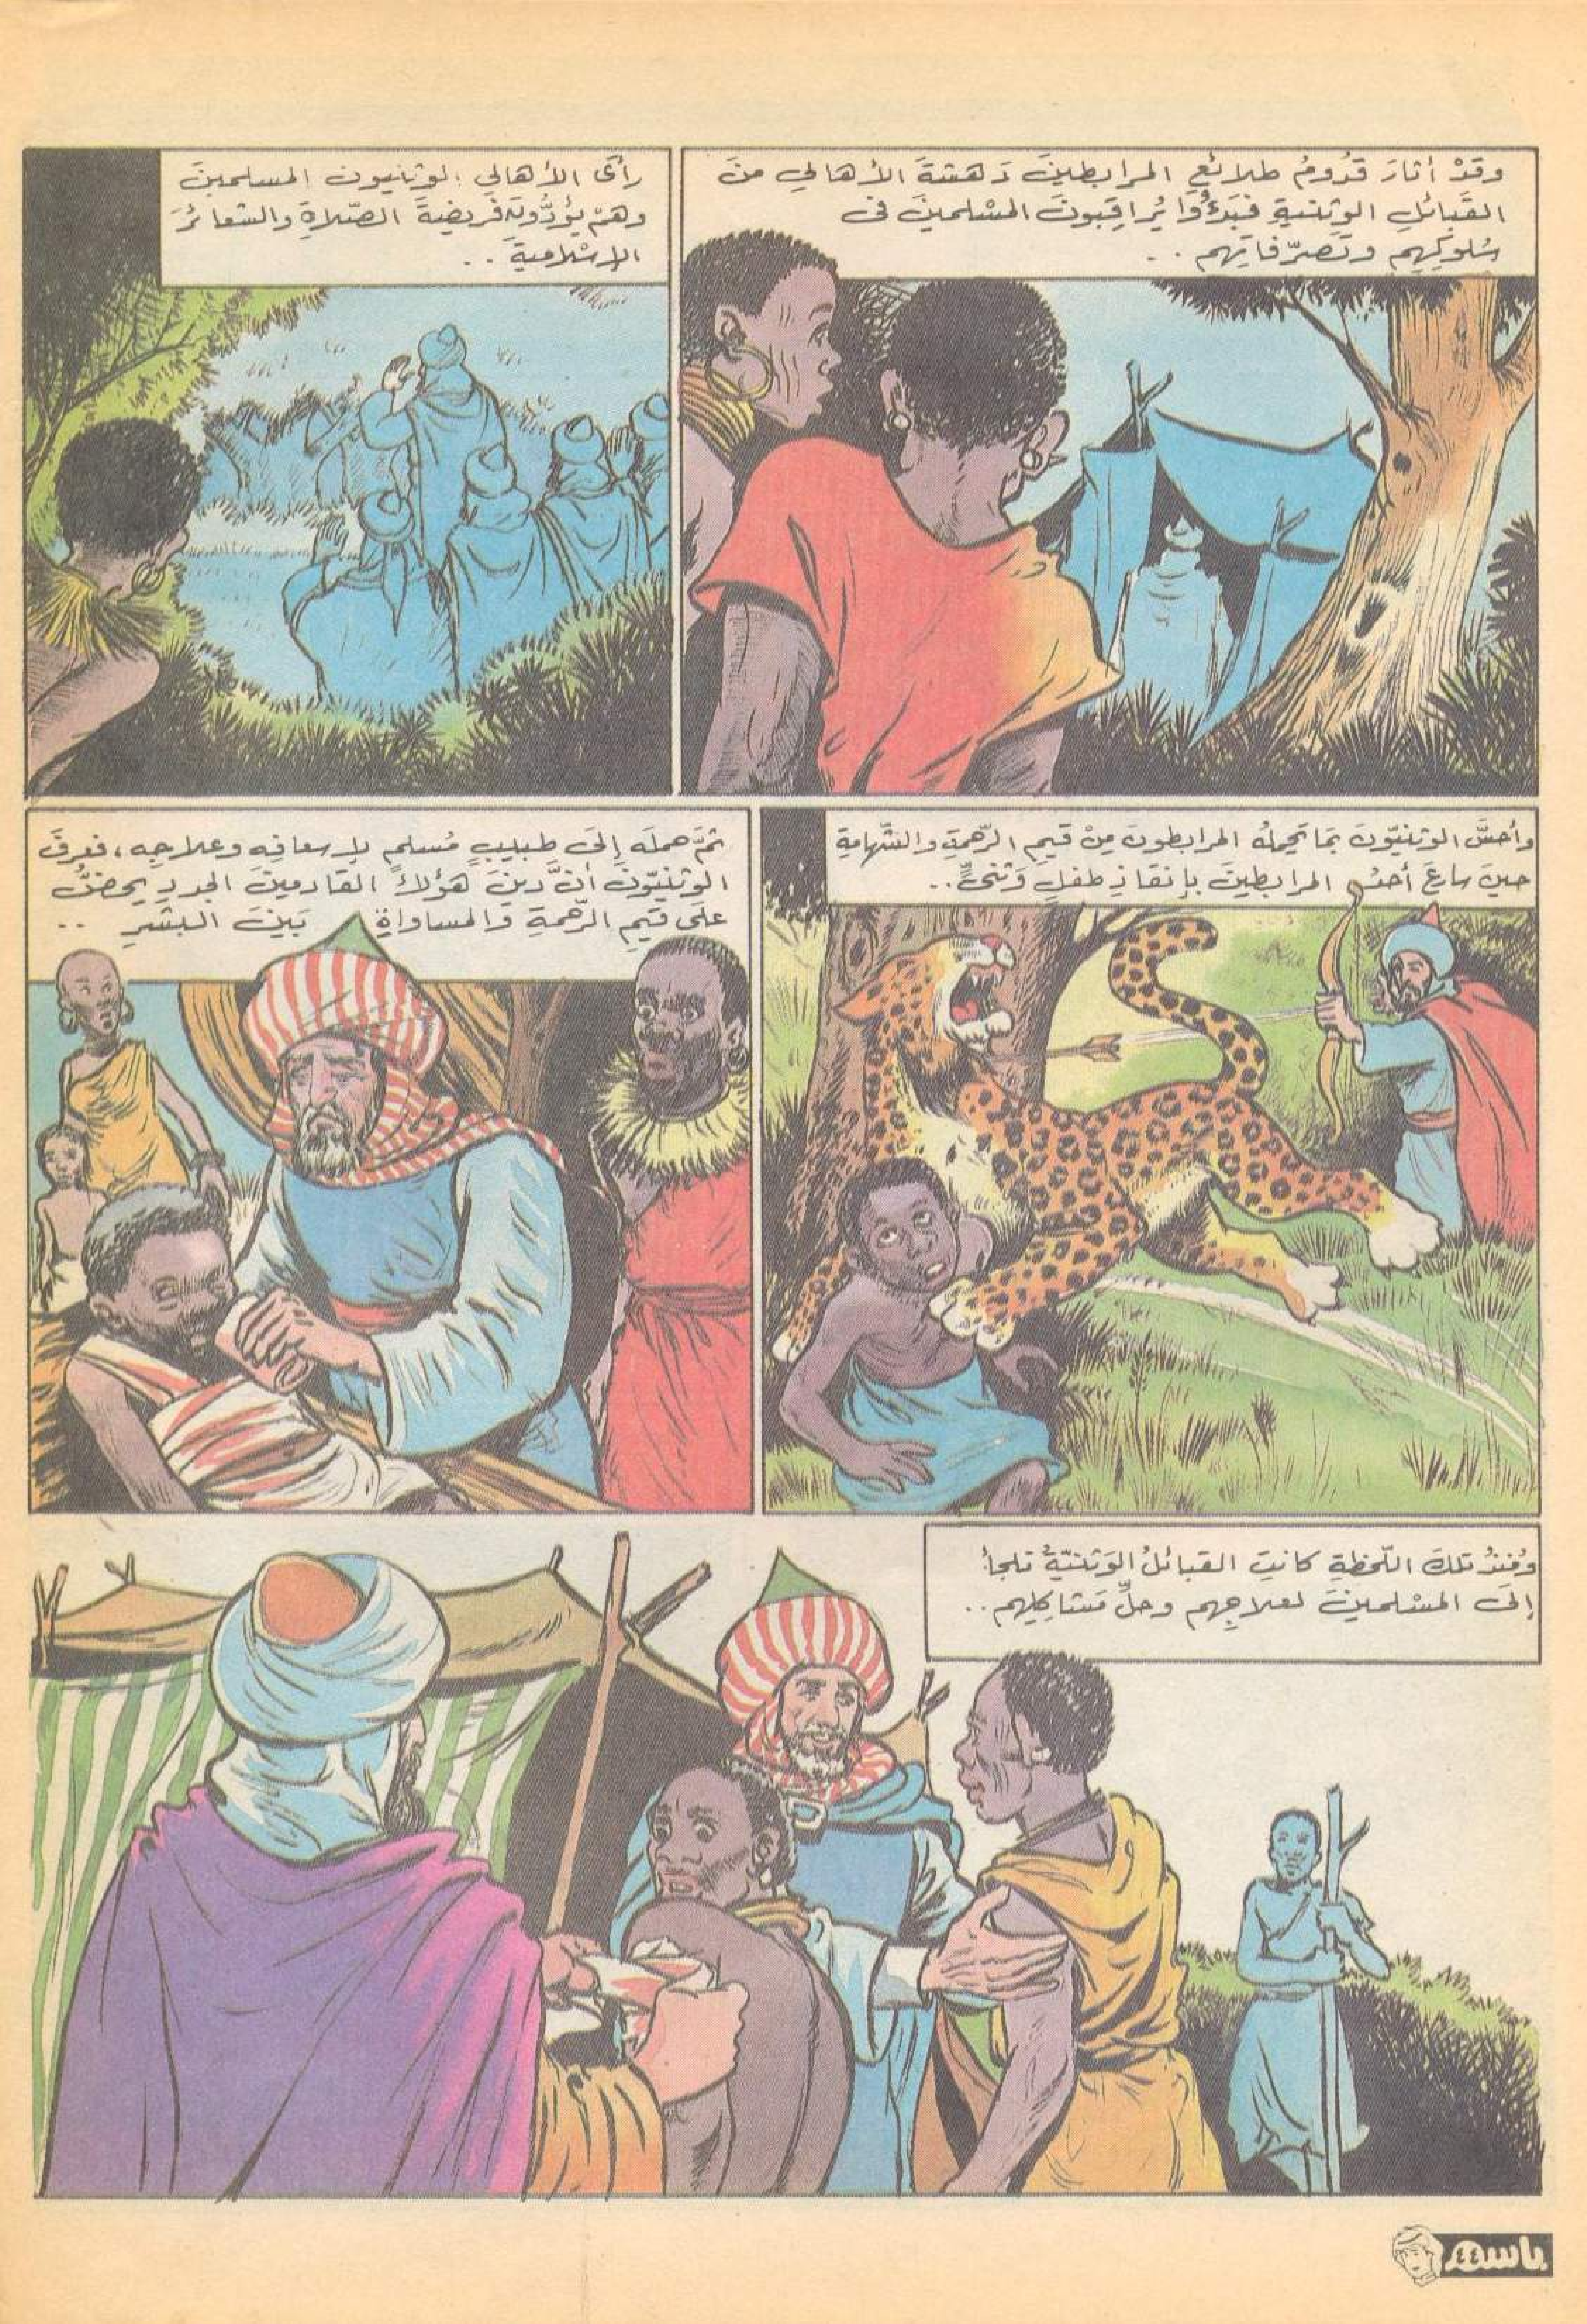 وَقَدْ أَثارَ قُدُومُ طلائعِ المرابطينَ دَهشةَ الأهالي منَ
القَبائلِ الوثنيةِ فبَدءُوا يُراقبونَ المسْلمينَ فى
سُلوكِهِم وتَصرّفاتِهم ..
رأى الأهالي الوثنيون المسلمينَ
وهمْ يؤدُّونَ فريضةَ الصّلاةِ والشعائرَ
الإسْلاميةَ ..
وأحسَّ الوثنيّونَ بمَا يَحملُه المرابطونَ مِنْ قيمِ الرّحمةِ والشّهامةِ
حينَ سارعَ أحدُ المرابطينَ بإنقاذِ طفلٍ وَثنىٍّ..
ثمّ حملَه إلىَ طبيبٍ مُسلمٍ لإسعافِه وعلاجِه، فعرفَ
الوثنيّونَ أنَّ دينَ هؤلاءِ القادمينَ الجددِ يحضُّ
علىَ قيمِ الرّحمةِ والمساواةِ بَينَ البشرِ ..
ومُنذُ تلكَ اللّحظةِ كانتِ القبائلُ الوَثنيّةُ تلجأُ
إلىَ المسْلمينَ لعلاجِهم وحلِّ مَشاكلِهم ..
باسم